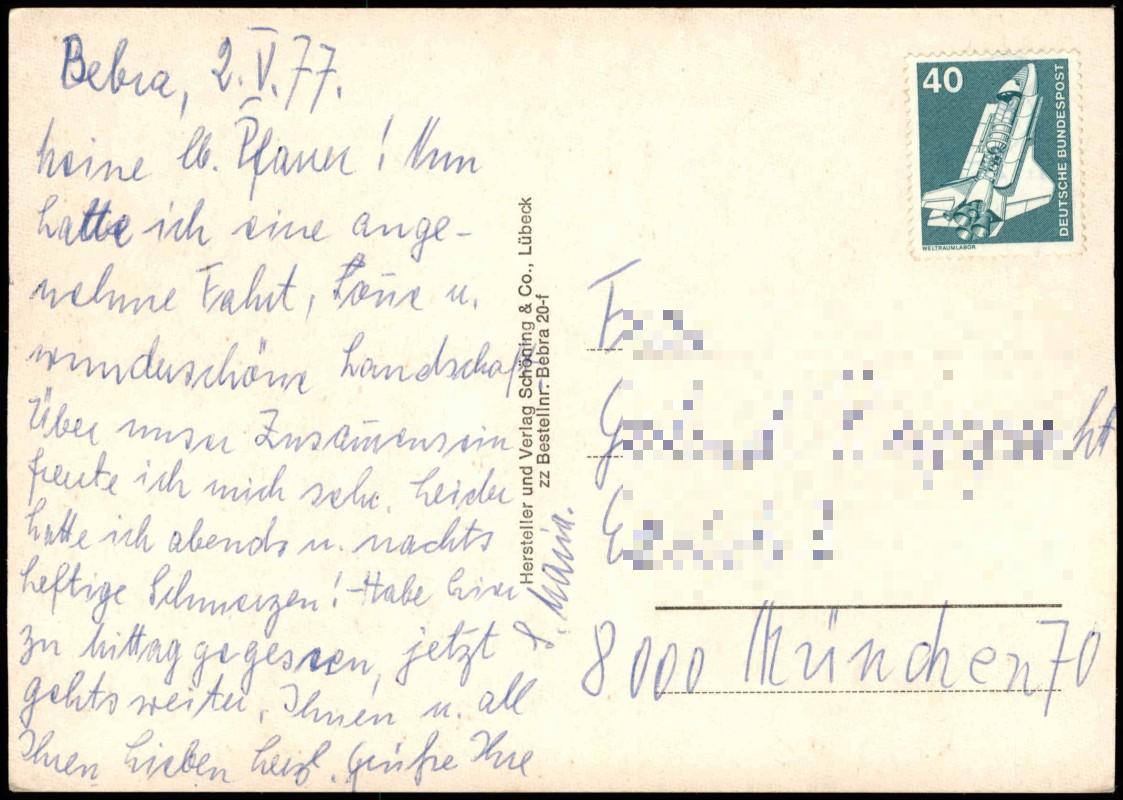 Bebra, 2.V.77.
Meine lb. Pfauer! Nun
hatte ich eine ange-
nehme Fahrt, Sonne u.
wunderschöne Landschaft.
Über unser Zusammensein
freute ich mich sehr. Leider
hatte ich abends u. nachts
heftige Schmerzen! Habe hier
zu Mittag gegessen, jetzt
gehts weiter. Ihnen u. all
Ihren Lieben herzl. Grüße Ihre
S. Maria.
Hersteller und Verlag Schöning & Co., Lübeck
zz Bestellnr. Bebra 20-f
40
DEUTSCHE BUNDESPOST
WELTRAUMLABOR
8000 München 70